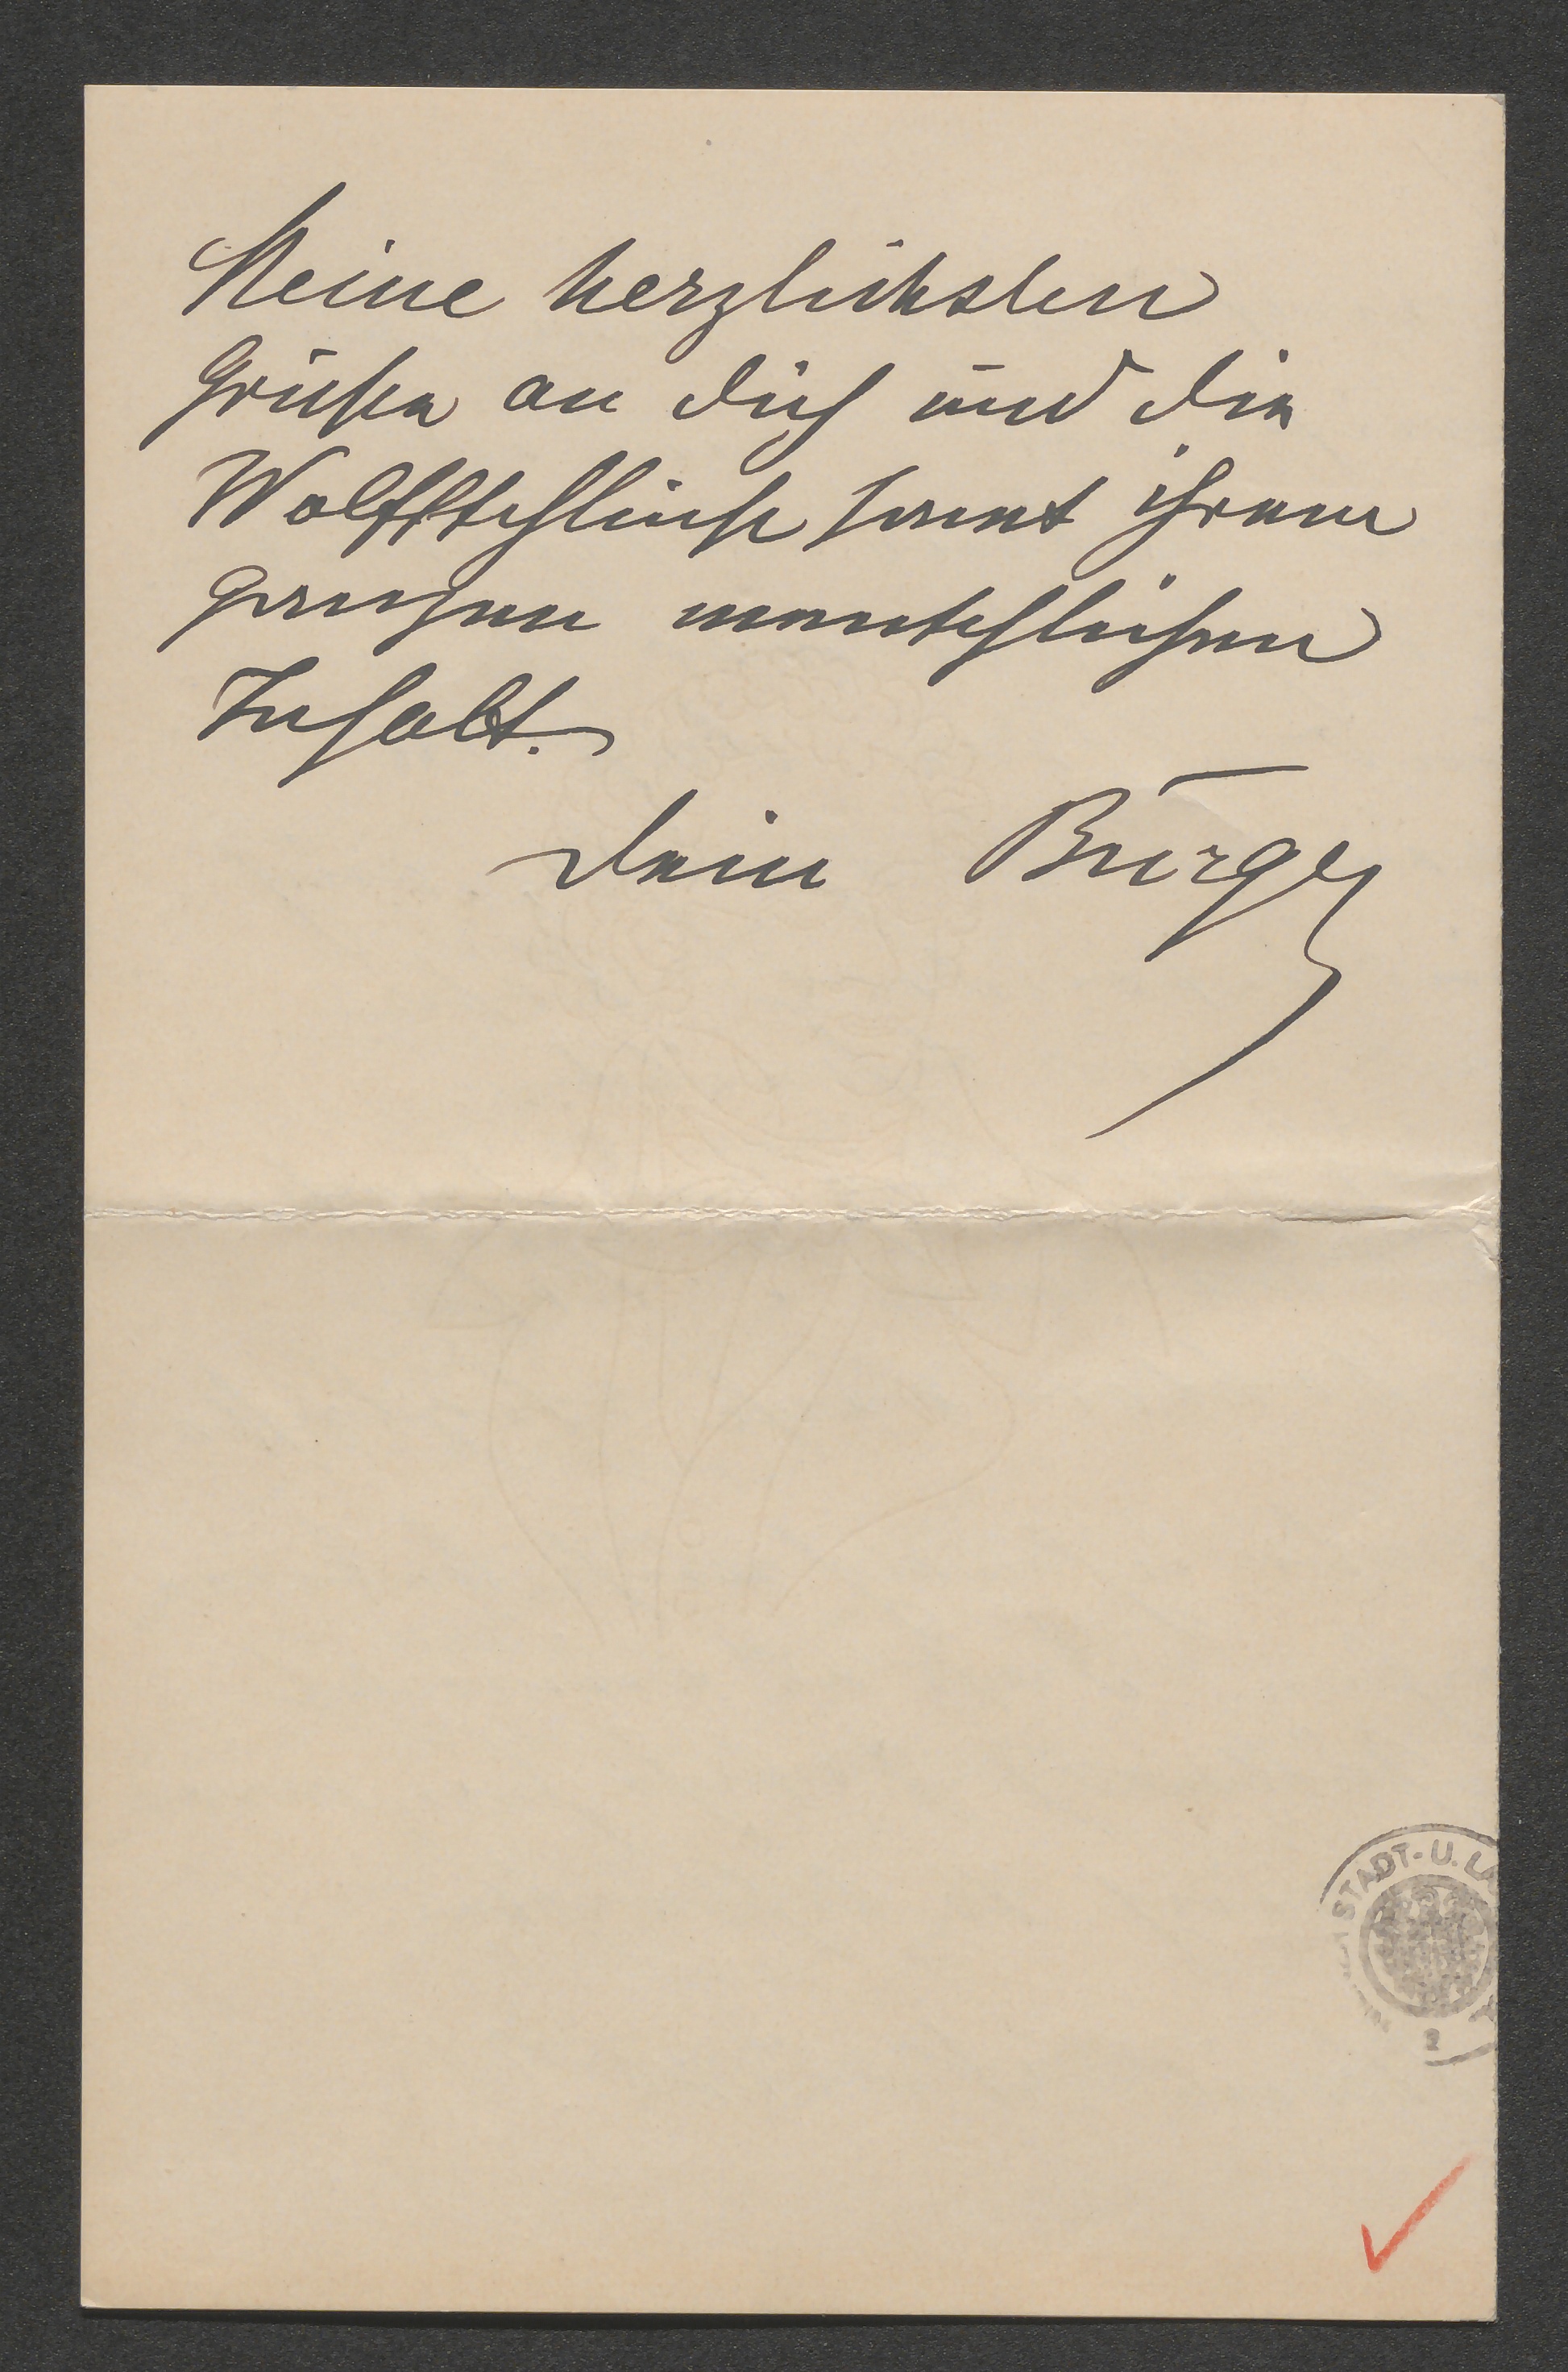 Meine herzlichsten
Grüße an Dich und die
Wolfsschlucht samt ihrem
ganzen menschlichen
Inhalt.
Dein Burger
STADT- U. LA
2